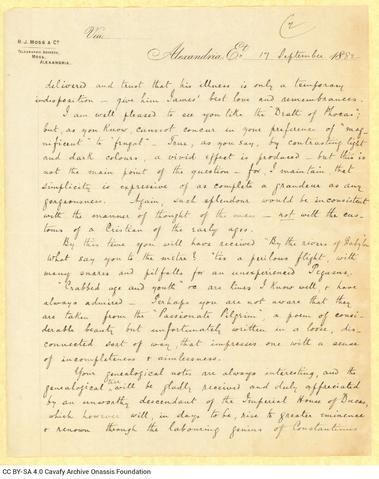 R. J. MOSS & Co.
TELEGRAPHIC ADDRESS,
MOSS,
ALEXANDRIA.
Via
2
Alexandria, Et. 17 September 1882
delivered and trust that his illness is only a temporary
indisposition – give him James' best love and remembrances.
I am well pleased to see you like the "Death of Phocas";
but, as you know, cannot concur in your preference of "mag-
nificent" to "frugal" – True, as you say, by contrasting light
and dark colours, a vivid effect is produced – but this is
not the main point of the question – for, I maintain, that
simplicity is expressive of as complete a grandeur as any
gorgeousness. Again, such splendour would be inconsistent
with the manner of thought of the man – not with the cus-
toms of a Cristian of the early ages.
By this time you will have received "By the rivers of Babylon
What say you to the metre? 'tis a perilous flight, with
many snares and pitfalls for an unexperienced Pegasus,
"Crabbed age and youth" &c are lines I know well, & have
always admired – Perhaps you are not aware that they
are taken from the "Passionate Pilgrim", a poem of consi-
derable beauty but unfortunately written in a loose, dis-
connected sort of way, that impresses one with a sense
of incompleteness & aimlessness.
Your genealogical notes are always interesting, and the
genealogical tree will be gladly received and duly appreciated
by an unworthy descendant of the Imperial House of Ducas,
which however will, in days to be, rise to greater eminence
& renown through the labouring genius of Constantinus
CC BY-SA 4.0 Cavafy Archive Onassis Foundation